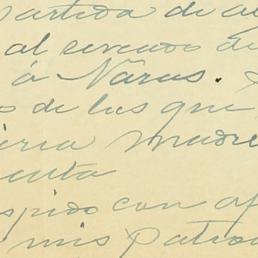 partida de a
al servicio de
á Náras.
s de las que
iera madre
enta
spido con af
mis patro